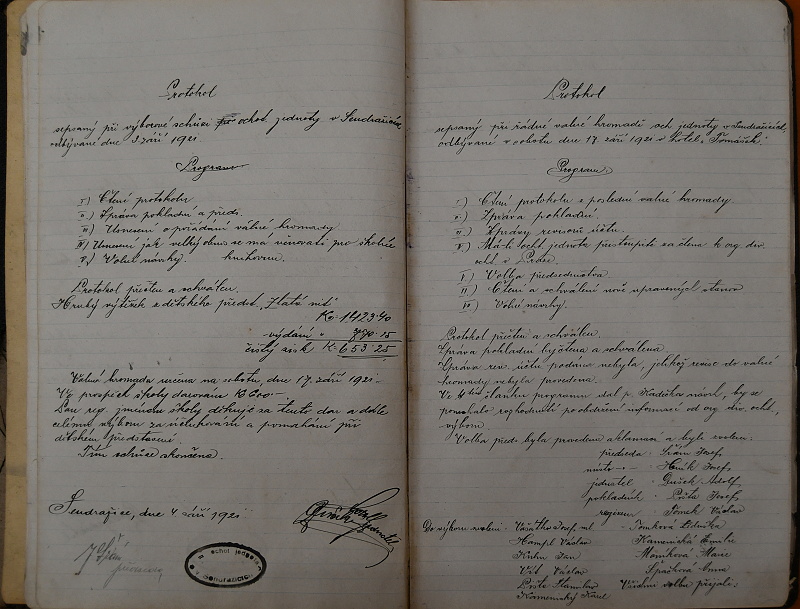 Protokol
sepsaný při výborové schůzi ochot. jednoty v Sendražicích
odbývané dne 3 září 1921.
Program
I.) Čtení protokolu.
II.) Zpráva pokladní a předs.
III.) Usnesení o pořádání valné hromady
IV.) Usnesení jak velký obnos se má věnovati pro školní
V.) Volné návrhy. knihovnu.
Protokol přečten a schválen.
Hrubý výtěžek z dětského předst. „Zlatá nit"
Kč 1423·40
vydání " 770·15
čistý zisk K 653·25
Valná hromada určena na sobotu, dne 17. září 1921.
Ve prospěch školy darováno K 600·-
Pan jménem školy děkuje za tento dar a dále
celému výboru za a pomáhání při
dětském představení.
Tím schůze skončena.
Sendražice, dne 4 září 1921
ochot. jednota
v Sendražicích
Protokol
sepsaný při řádné valné hromadě och. jednoty v Sendražicích,
odbývané v sobotu dne 17. září 1921 v hotel. „Tomášek."
Program.
I.) Čtení protokolu z poslední valné hromady.
II.) Zpráva pokladní.
III.) Zprávy revisorů účtů.
IV.) Má-li ocht. jednota přistoupiti za člena k org. div.
ocht. v Praze.
V.) Volba předsednictva
VI.) Čtení a schválení nově upravených stanov
VII.) Volné návrhy.
Protokol přečten a schválen.
Zpráva pokladní a schválena.
Zpráva rev. účtů podána nebyla, jelikož revise do valné
hromady nebyla provedena.
Ve článku programu dal p. Kadečka návrh, by se
ponechalo rozhodnutí po obdržení informací od org. div. ocht.
výboru.
Volba předs. byla provedena aklamací a byli zvoleni:
předseda Josef
místo-"- Haník Josef
jednatel Dušek Adolf
pokladník Pišta Josef
regisseur Tomek Václav
Do výboru zvoleni: Vašátko Josef ml
Hampl Václav Kamenická Emilie
Kuhn Jan Marie
Václav Špačková Anna
Stanislav Všichni volbu přijali.
Kamenický Karel